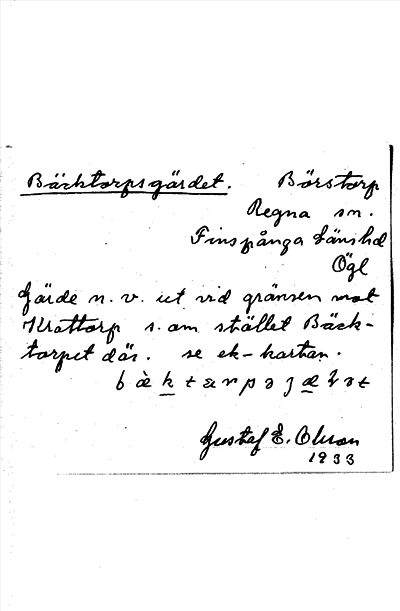 Bäcktorpsgärdet. Börstorp
Regna sn.
Finspånga länshd
Ögl
Gärde n. v. ut vid gränsen mot
Krattorp s. om stället Bäck-
torpet där. se ek-kartan.
Gustaf E. Olsson
1933